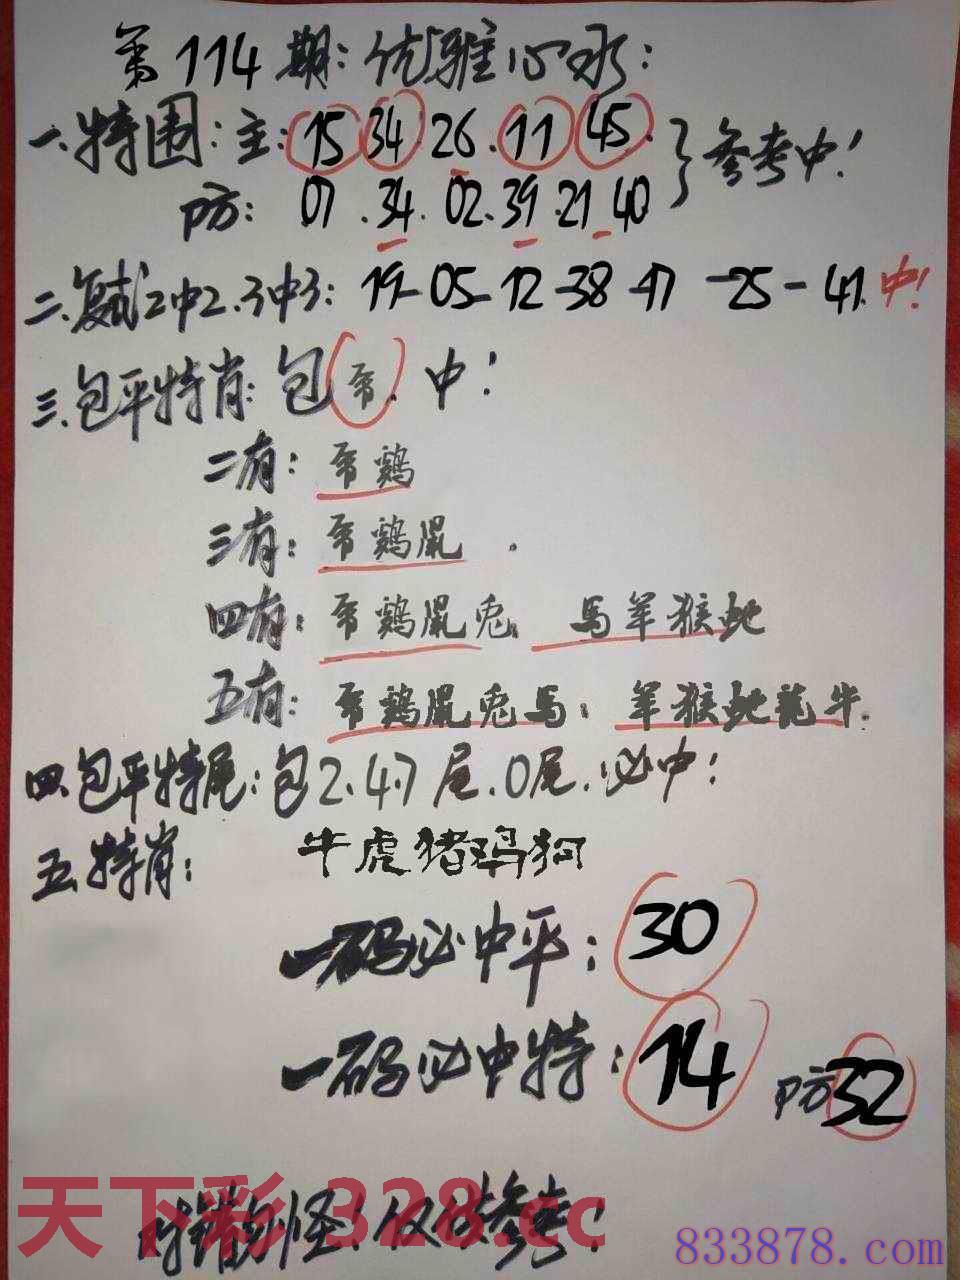 第114期:优雅心水:
一.特围:主:15 34 26.11 45.
防: 07.34.02.39.21.40
参考中!
二.复式2中2.3中3: 19-05-12-38-17-25-41.中!
三.包平特肖:包 . 中!
二有: 鸡
三有: 鸡鼠.
四有: 鸡鼠兔. 马羊猴蛇
五有: 鸡鼠兔马: 羊猴蛇龙牛.
四.包平特尾:包2.4.7尾.0尾.必中!
五.特肖: 牛虎猪鸡狗
一码必中平: 30
一码必中特: 14 防32
对错勿怪!仅供参考!
天下彩 328.cc
833878.com